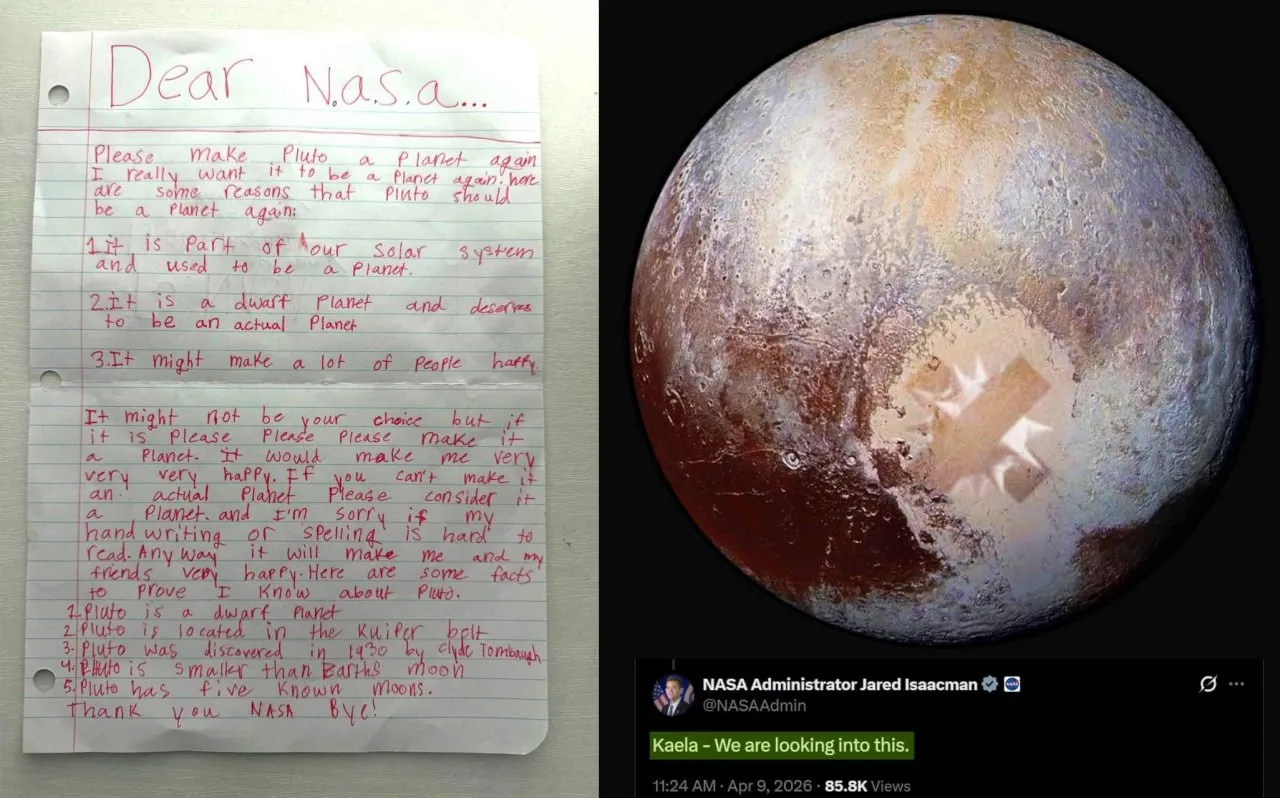 Dear N.a.s.a...
Please make Pluto a Planet again
I really want it to be a Planet again. here
are some reasons that Pluto should
be a Planet again:
1.it is part of our solar system
and used to be a Planet.
2.It is a dwarf Planet and deserves
to be an actual Planet
3.It might make a lot of people happy
It might not be your choice but if
it is Please Please Please make it
a Planet. It would make me very
very very happy. If you can't make it
an actual Planet Please consider it
a Planet. and I'm sorry if my
hand writing or spelling is hard to
read. Any way it will make me and my
friends very happy. Here are some facts
to prove I know about Pluto.
1.Pluto is a dwarf Planet
2 Pluto is located in the Kuiper belt
3. Pluto was discovered in 1930 by Clyde Tombaugh
4. Pluto is smaller than Earths moon
5. Pluto has five known moons.
Thank you NASA Bye!
NASA Administrator Jared Isaacman
@NASAAdmin
Kaela - We are looking into this.
11:24 AM · Apr 9, 2026 · 85.8K Views